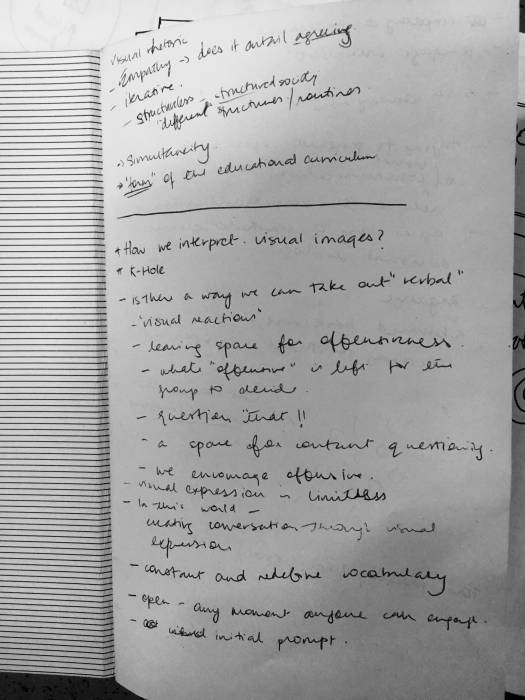 visual rhetoric
- Empathy → does it entail agreeing
- iterative.
- structureless - structured society
"different" structures / routines
→ simultaneity
→ "form" of the educational curriculum
* How we interpret visual images?
* K-Hole
- is there a way we can take out "verbal"
- "visual reactions"
- leaving space for offensiveness.
- what "offensive" is left for the
group to decide.
- question "that"!!
- a space for constant questioning.
- we encourage offensive.
- visual expression is limitless
- In this world -
creating conversation through visual
expression
- constant and redefine vocabulary
- open - any moment anyone can engage.
- initial prompt.